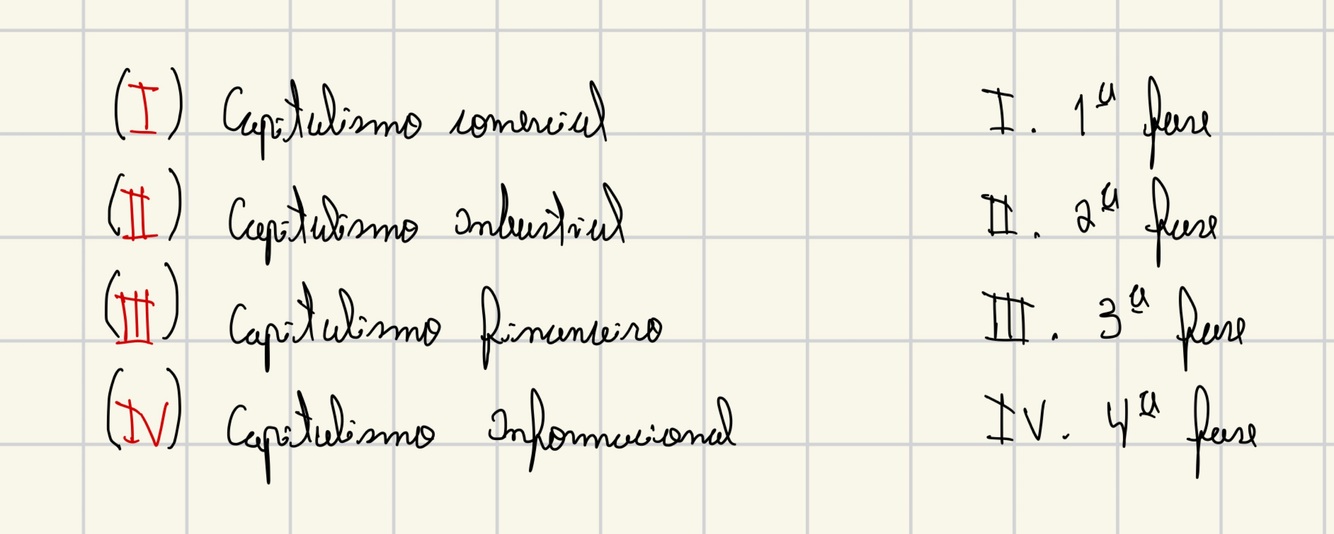 (I) Capitalismo comercial I. 1ª fase
(II) Capitalismo industrial II. 2ª fase
(III) Capitalismo financeiro III. 3ª fase
(IV) Capitalismo informacional IV. 4ª fase